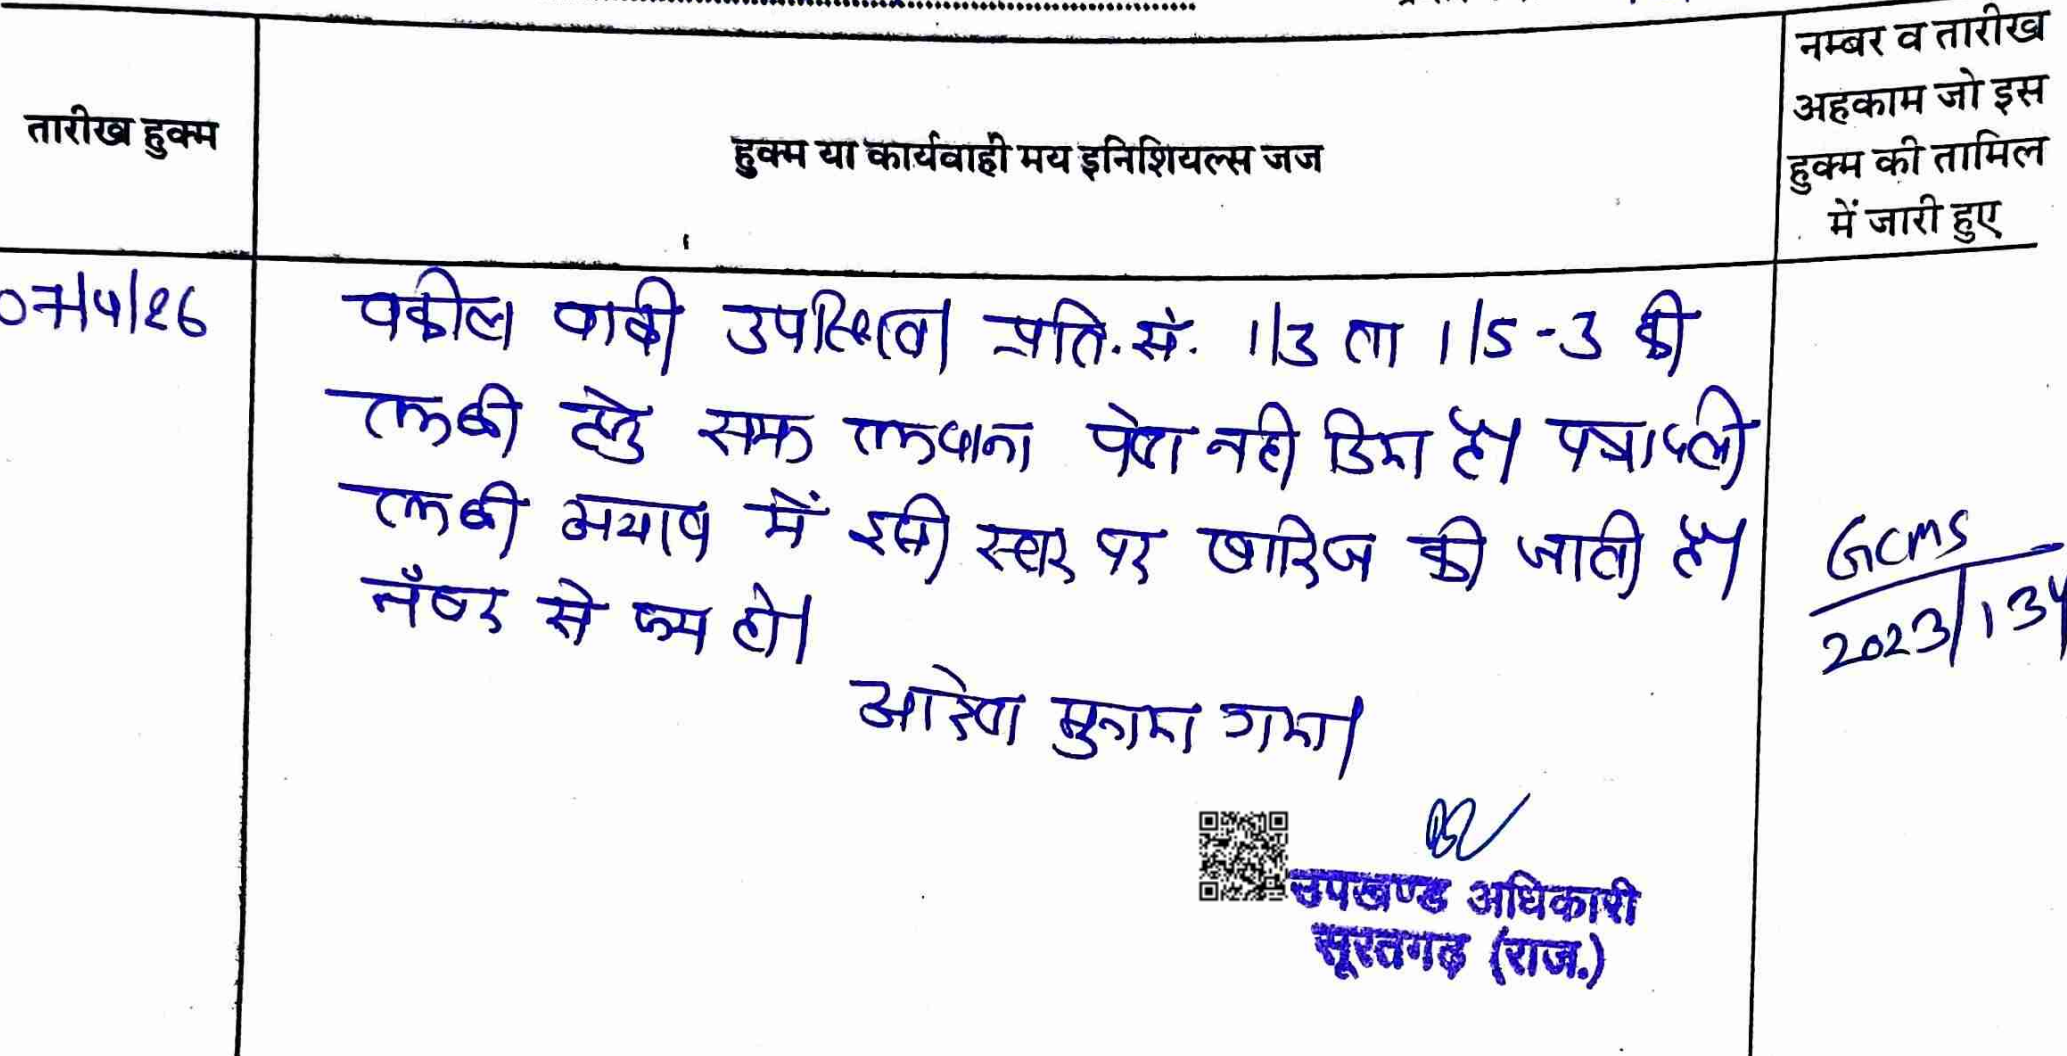 तारीख हुक्म
हुक्म या कार्यवाही मय इनिशियल्स जज
नम्बर व तारीख
अहकाम जो इस
हुक्म की तामिल
में जारी हुए
07/4/26
वकील वादी उपस्थित। प्रति.सं. 1/3 ता 1/5-3 की
तलबी हेतु सम्मन तलवाना पेश नही किया है। पत्रावली
तलबी अभाव में इसी स्तर पर खारिज की जाती है।
नँबर से कम हो।
आदेश सुनाया गया।
GCMS
2023/134
उपखण्ड अधिकारी
सूरतगढ़ (राज.)